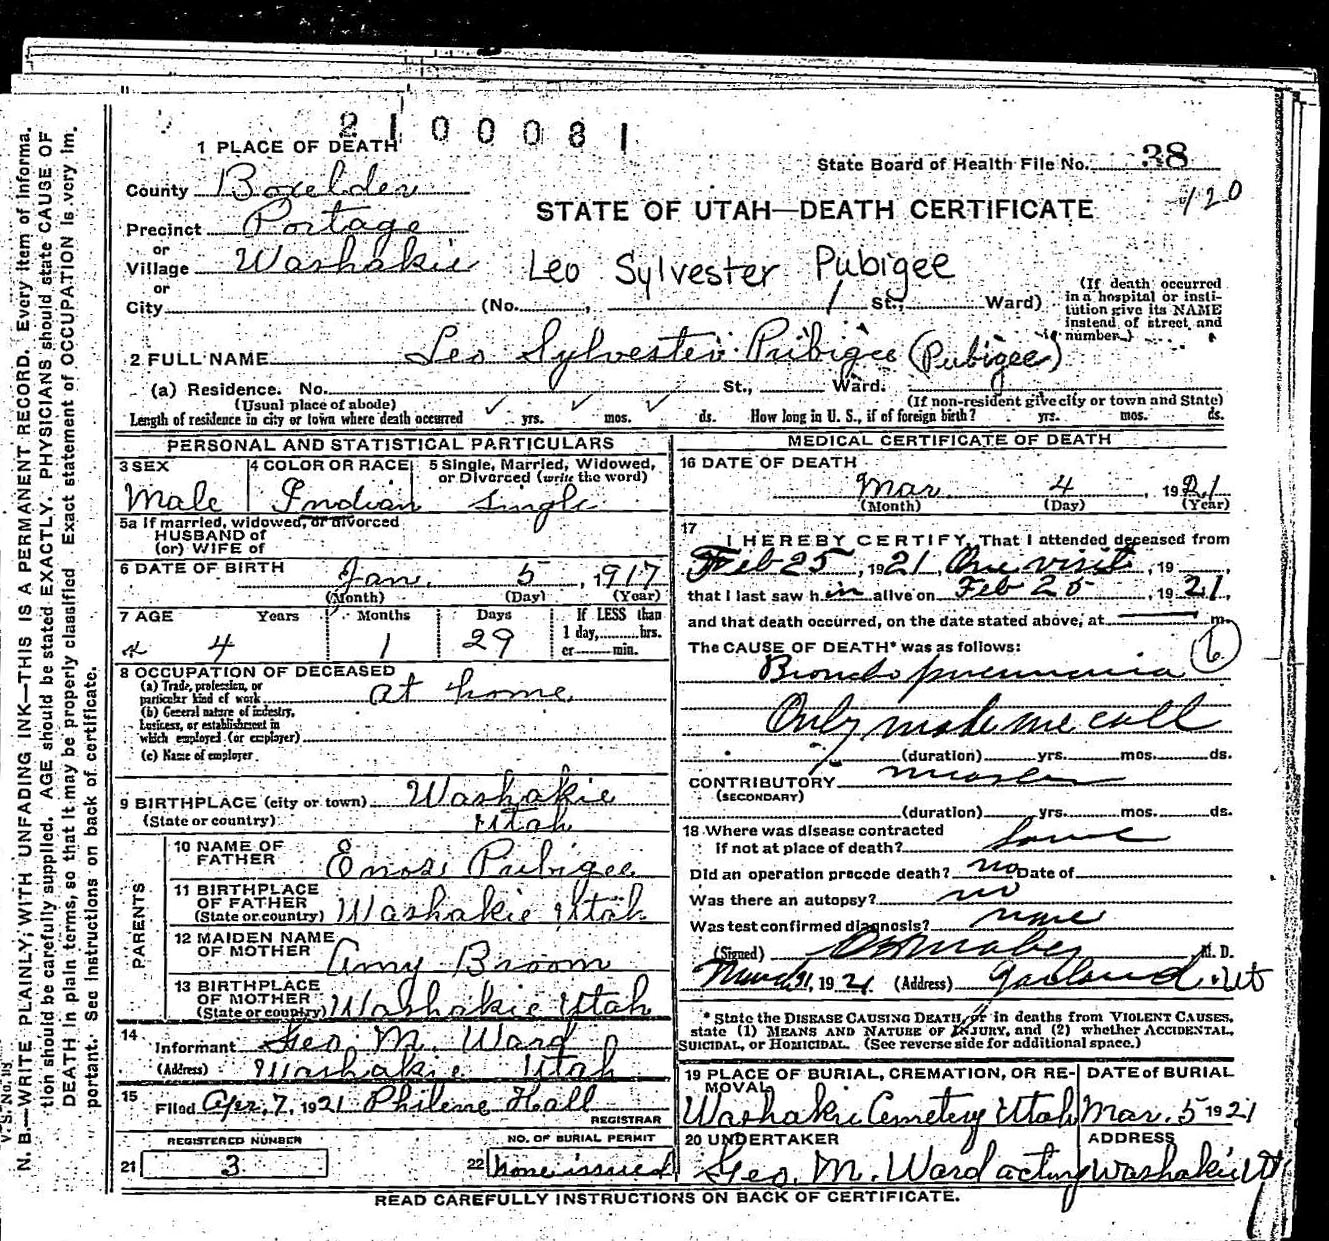 2100081
1 PLACE OF DEATH
State Board of Health File No. 38
120
County Boxelder
STATE OF UTAH—DEATH CERTIFICATE
Precinct Portage
or
Village Washakie
Leo Sylvester Pubigee
or
City (No. , St., Ward)
(If death occurred in a hospital or institution give its NAME instead of street and number.)
2 FULL NAME Leo Sylvester Pubigee (Pubigee)
(a) Residence. No. St., Ward.
(Usual place of abode) (If non-resident give city or town and State)
Length of residence in city or town where death occurred yrs. mos. ds. How long in U. S., if of foreign birth? yrs. mos. ds.
PERSONAL AND STATISTICAL PARTICULARS
3 SEX Male
4 COLOR OR RACE Indian
5 Single, Married, Widowed, or Divorced (write the word) Single
5a If married, widowed, or divorced
HUSBAND of
(or) WIFE of
6 DATE OF BIRTH Jan. 5, 1917
(Month) (Day) (Year)
7 AGE Years Months Days If LESS than
4 1 29 1 day, hrs.
or min.
8 OCCUPATION OF DECEASED
(a) Trade, profession, or
particular kind of work at home
(b) General nature of industry,
business, or establishment in
which employed (or employer)
(c) Name of employer
9 BIRTHPLACE (city or town) Washakie
(State or country) Utah
PARENTS
10 NAME OF FATHER Enos Pubigee
11 BIRTHPLACE OF FATHER (State or country) Washakie Utah
12 MAIDEN NAME OF MOTHER Amy Broom
13 BIRTHPLACE OF MOTHER (State or country) Washakie Utah
14 Informant Geo. M. Ward
(Address) Washakie Utah
15 Filed Apr. 7, 1921 Philene Hall
REGISTRAR
REGISTERED NUMBER
21 3
NO. OF BURIAL PERMIT
22 none issued
MEDICAL CERTIFICATE OF DEATH
16 DATE OF DEATH
Mar 4, 1921
(Month) (Day) (Year)
17
I HEREBY CERTIFY, That I attended deceased from
Feb 25, 1921, One visit, 19
that I last saw him alive on Feb 25, 1921,
and that death occurred, on the date stated above, at m.
The CAUSE OF DEATH* was as follows: 6
Broncho pneumonia
Only made one call
(duration) yrs. mos. ds.
CONTRIBUTORY measles
(SECONDARY)
(duration) yrs. mos. ds.
18 Where was disease contracted
if not at place of death? Same
Did an operation precede death? no Date of
Was there an autopsy? no
Was test confirmed diagnosis? none
(Signed) M. D.
1921 (Address) Garland Ut
* State the DISEASE CAUSING DEATH, or in deaths from VIOLENT CAUSES,
state (1) MEANS AND NATURE OF INJURY, and (2) whether ACCIDENTAL,
SUICIDAL, or HOMICIDAL. (See reverse side for additional space.)
19 PLACE OF BURIAL, CREMATION, OR REMOVAL
Washakie Cemetery Utah
DATE of BURIAL
Mar. 5 1921
20 UNDERTAKER
Geo. M. Ward acting
ADDRESS
Washakie Ut
READ CAREFULLY INSTRUCTIONS ON BACK OF CERTIFICATE.
N. B.—WRITE PLAINLY, WITH UNFADING INK—THIS IS A PERMANENT RECORD. Every item of informa-
tion should be carefully supplied. AGE should be stated EXACTLY. PHYSICIANS should state CAUSE OF
DEATH in plain terms, so that it may be properly classified. Exact statement of OCCUPATION is very im-
portant. See instructions on back of certificate.